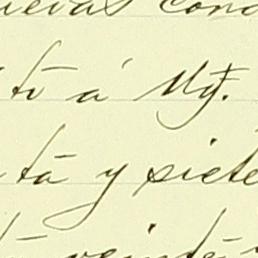 uevas cond
tó á Mz̄.
tá y siete
veinte